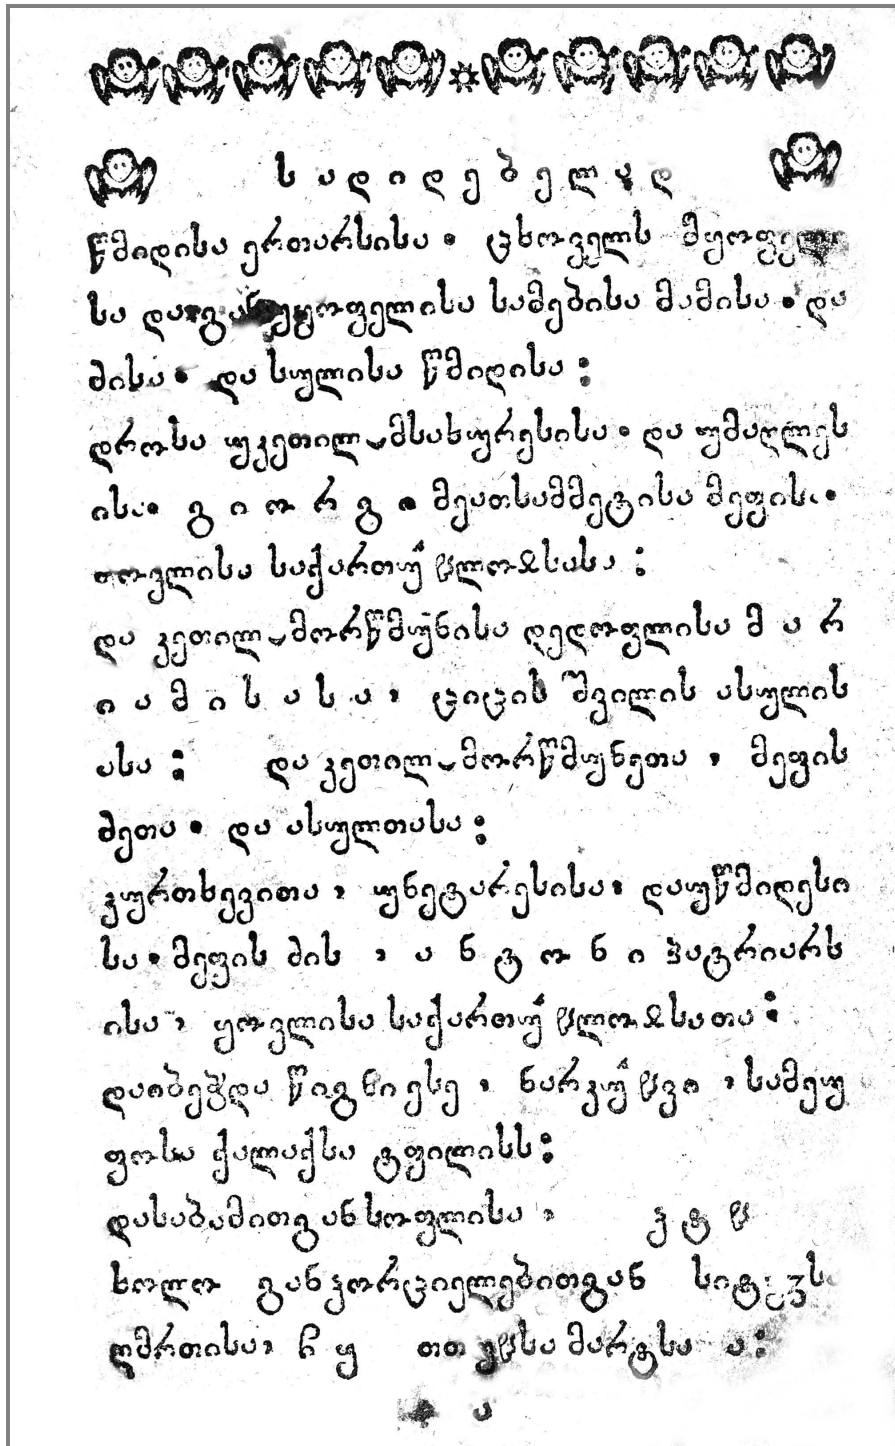 ს ა დ ი დ ე ბ ე ლ ა დ
წმიდისა ერთარსისა. ცხოველს მყოფელი
სა და განუყოფელისა სამებისა მამისა. და
ძისა. და სულისა წმიდისა:
დროსა უკეთილ მსახურესისა. და უმაღლეს
ისა. გ ი ო რ გ. მეათსამმეტისა მეფისა.
ყოვლისა საქართუჱლოჲსასა:
და კეთილ მორწმუნისა დედოფლისა მ ა რ
ი ა მ ი ს ა ს ა, ციცის შვილის ასულის
ასა: და კეთილ მორწმუნეთა, მეფის
ძეთა. და ასულთასა:
კურთხევითა, უნეტარესისა, დაუწმიდესი
სა. მეფის ძის, ა ნ ტ ო ნ ი პატრიარხ
ისა, ყოვლისა საქართუჱლოჲსათა:
დაიბეჭდა წიგნი ესე, სამეუ
ფოსა ქალაქსა ტფილისს:
დასაბამითგან სოფლისა, ჳ ტ ჱ
ხოლო განკორციელებითგან სიტყვსა
ღმრთისა, ჩ ყ თთუჱსა მარტსა ა:
ა